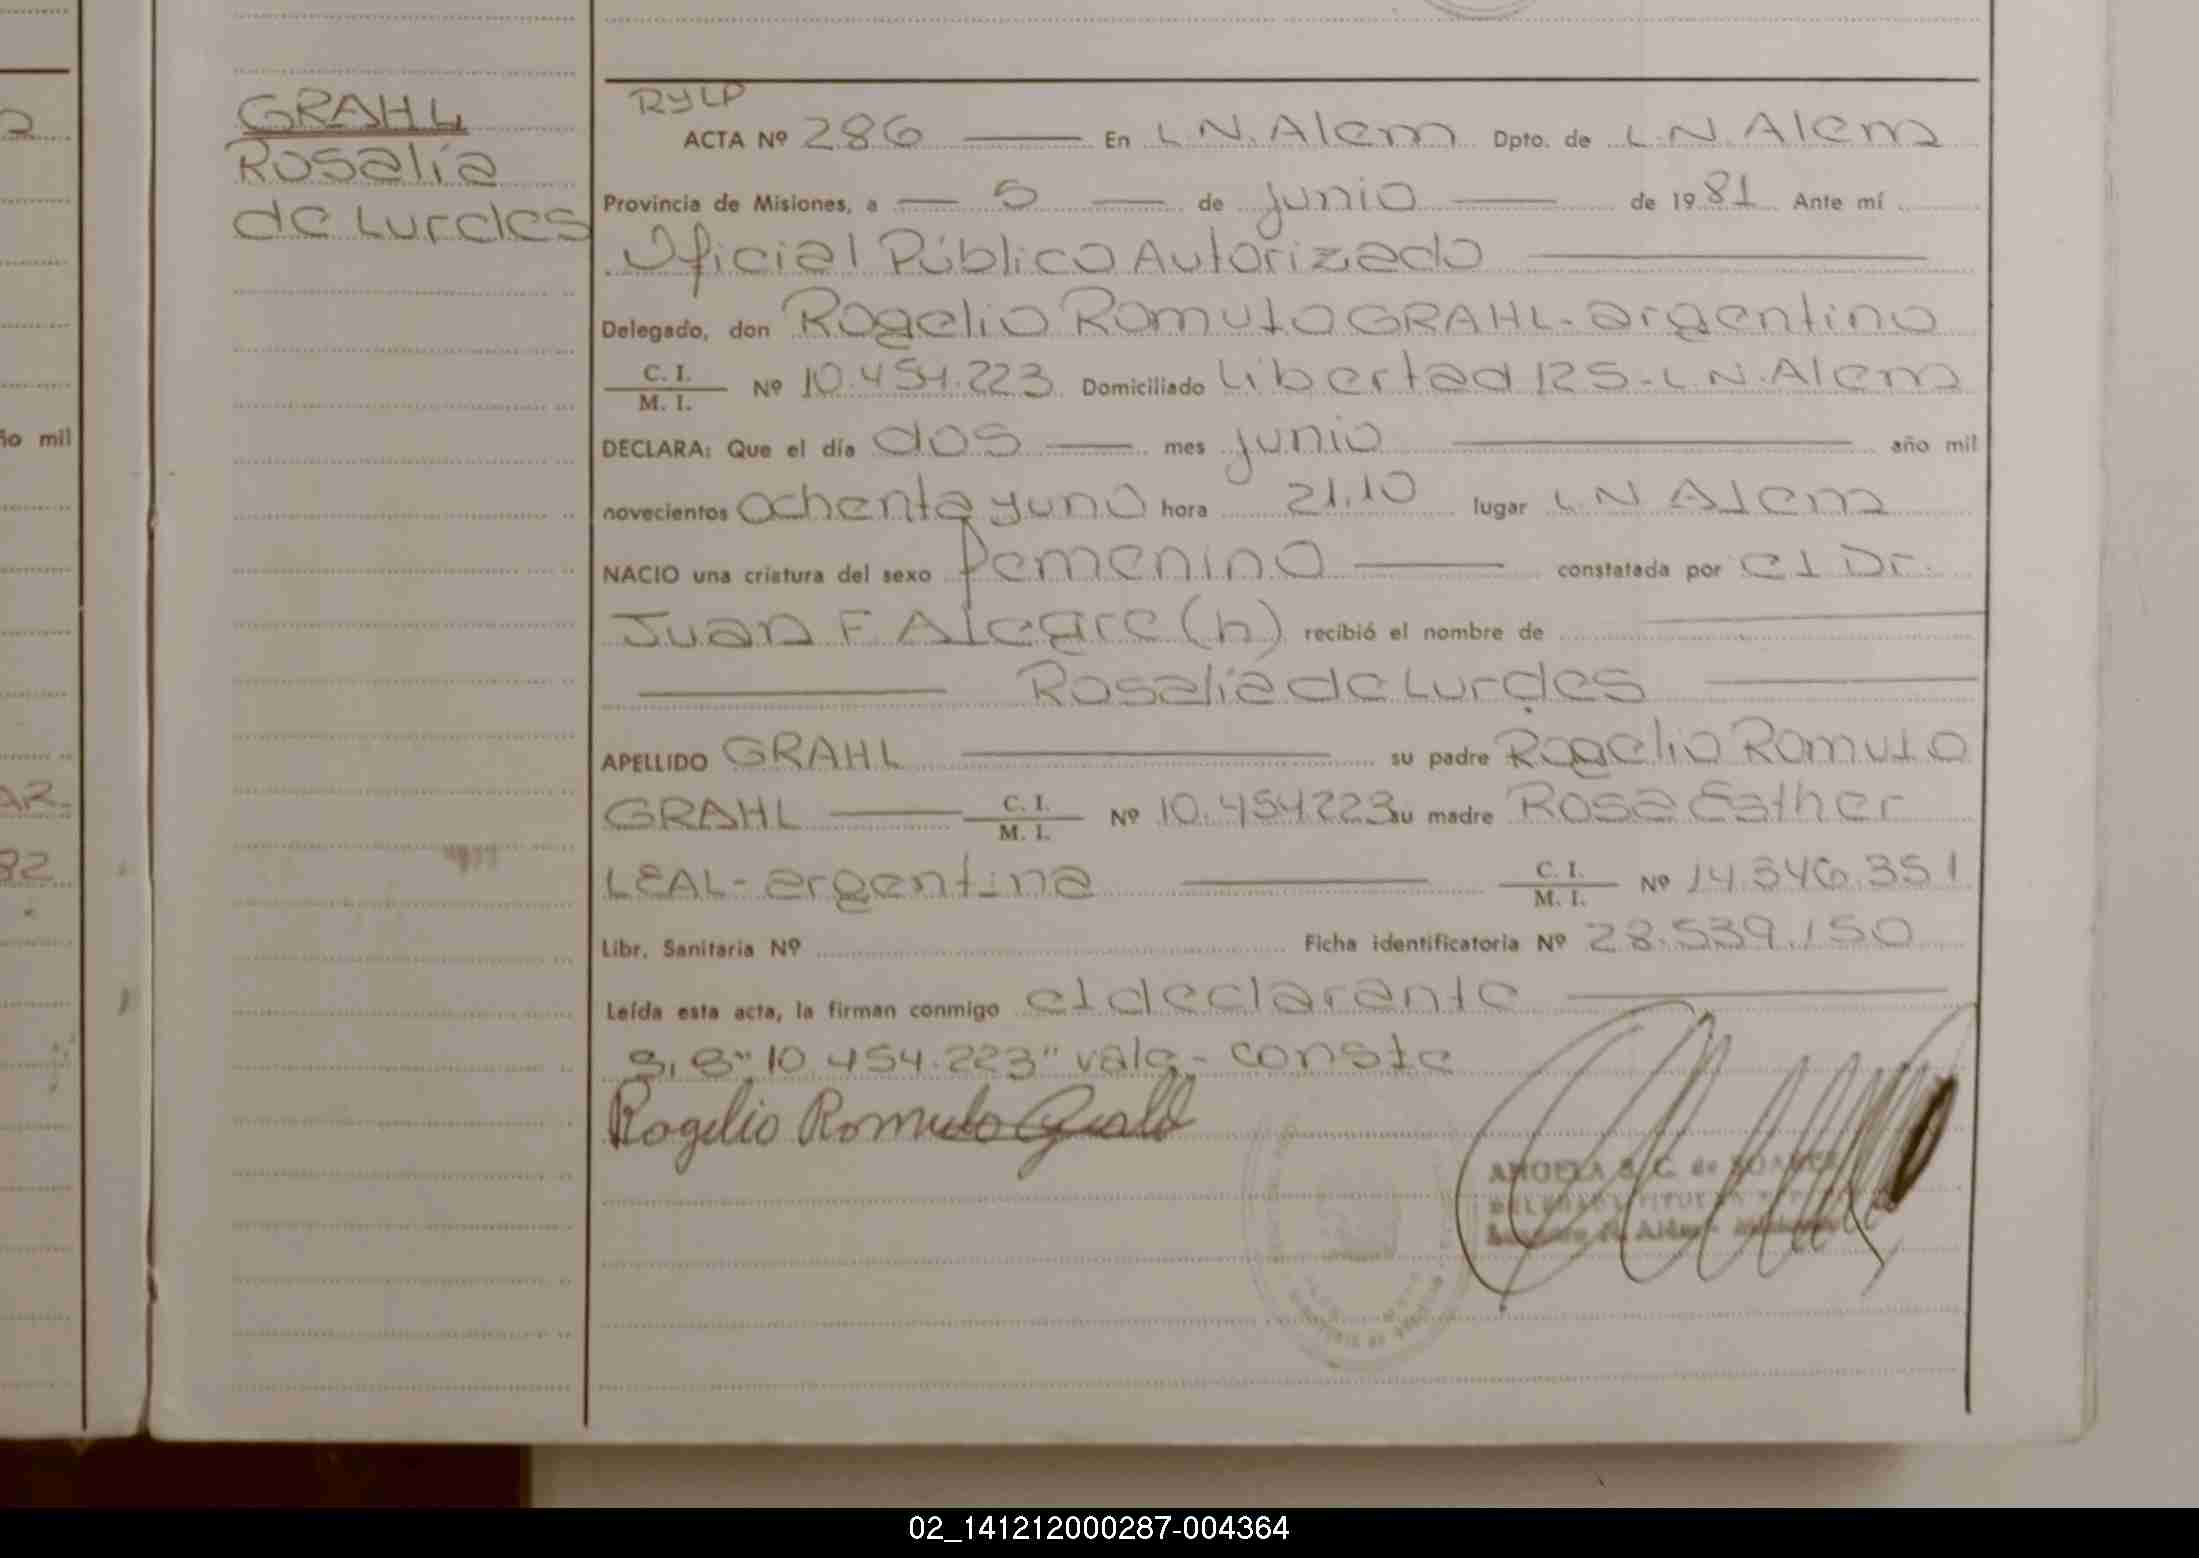 GRAHL
Rosalía
de Lurdes
RYLP
ACTA Nº 286 En L N. Alem Dpto. de L. N. Alem
Provincia de Misiones, a 5 de junio de 1981 Ante mí
Oficial Público Autorizado
Delegado, don Rogelio Romulo GRAHL - argentino
C. I. / M. I. Nº 10.454.223 Domiciliado Libertad 125 - L. N. Alem
DECLARA: Que el día dos mes junio año mil
novecientos ochenta y uno hora 21.10 lugar L N Alem
NACIO una criatura del sexo femenino constatada por el Dr.
Juan F. Alegre (h) recibió el nombre de
Rosalía de Lurdes
APELLIDO GRAHL su padre Rogelio Romulo
GRAHL C. I. / M. I. Nº 10.454223 su madre Rosa Esther
LEAL - argentina C. I. / M. I. Nº 14.346.351
Libr. Sanitaria Nº Ficha identificatoria Nº 28.539.150
Leída esta acta, la firman conmigo el declarante
"10.454.223" vale - conste
Rogelio Romulo Grahl
ANGELA S. C. de SOAREZ
DELEGADA TITULAR
ño mil
AR.
82
02_141212000287-004364